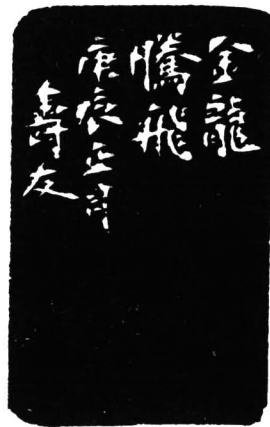 金龍
騰飛
庚辰正月
壽友